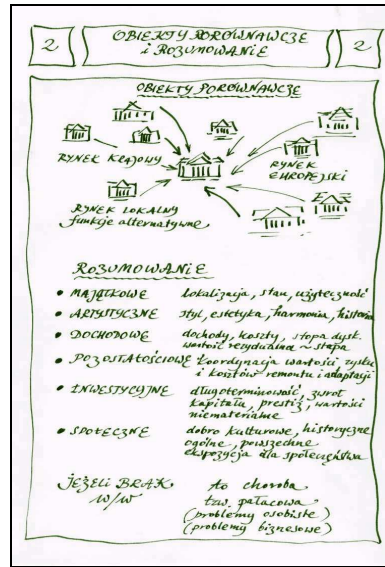 2
OBIEKTY PORÓWNAWCZE
i ROZUMOWANIE
2
OBIEKTY PORÓWNAWCZE
RYNEK KRAJOWY
RYNEK
EUROPEJSKI
RYNEK LOKALNY
funkcje alternatywne
ROZUMOWANIE
• MAJĄTKOWE lokalizacja, stan, użyteczność
• ARTYSTYCZNE styl, estetyka, harmonia, historia
• DOCHODOWE dochody, koszty, stopa dysk.
wartość rezydualna ~ stopa
• POZOSTAŁOŚCIOWE koordynacja wartości zysku
i kosztów remontu i adaptacji
• INWESTYCYJNE długoterminowość, zwrot
kapitału, prestiż, wartości
niematerialne
• SPOŁECZNE dobro kulturowe, historyczne
ogólne, powszechne
ekspozycja dla społeczeństwa
JEŻELI BRAK to choroba
w/w tzw. pałacowa
(problemy osobiste)
(problemy biznesowe)